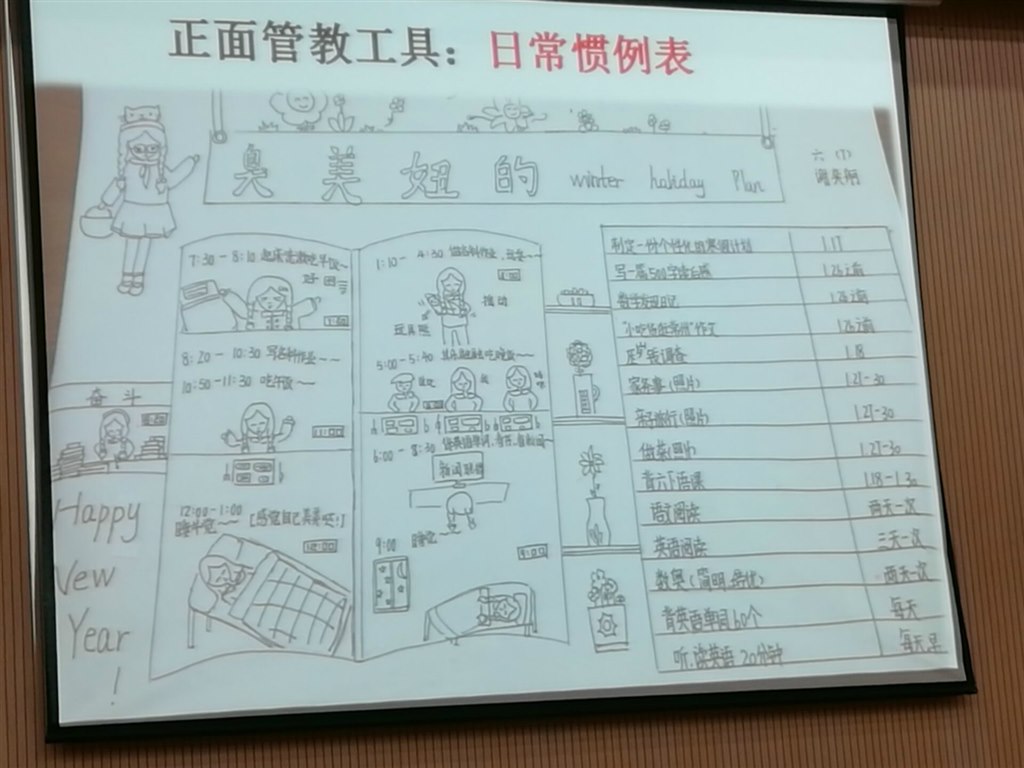 正面管教工具：日常惯例表
臭美妞的 winter holiday Plan
六（1）
7:30-8:10 起床洗漱吃早饭~
7:30
8:20-10:30 写各科作业~~
10:50-11:30 吃午饭~~
11:00
12:00-1:00
睡午觉~~ [感觉自己美美哒!]
12:00
1:10-4:30 做各科作业、玩耍~~
5:00-5:40 其乐融融吃晚饭~~
6:00-8:30
新闻联播
9:00 睡觉~~
9:00
奋斗
Happy
New
Year
!
制定一份个性化的寒假计划 1.17
写一篇500字读后感 1.26之前
数学发现日记 1.26之前
1.26之前
压岁钱调查 1.8
家务事(照片) 1.21-30
亲子旅行(照片) 1.21-30
做菜(照片) 1.21-30
背六下语课 1.18-1.30
语文阅读 两天一次
英语阅读 三天一次
数奥(简明、培优) 两天一次
背英语单词60个 每天
听、读英语20分钟 每天早